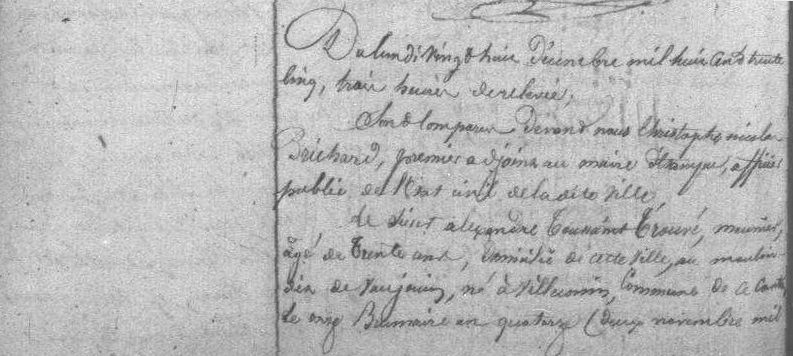 Du lundi vingt huit Décembre mil huit cent trente
cinq, trois heures de relevée,
Sont comparus devant nous Christophe nicolas
Brichard, premier adjoint au maire d'Etampes, officier
public de l'Etat civil de la dite ville,
Le sieur alexandre Toussaint Trouvé, meunier,
âgé de Trente ans, domicilié de cette ville, au moulin
dit de Vaujouan, né à Villeconin, Commune de ce Canton
Le onze Brumaire an quatorze (deux novembre mil